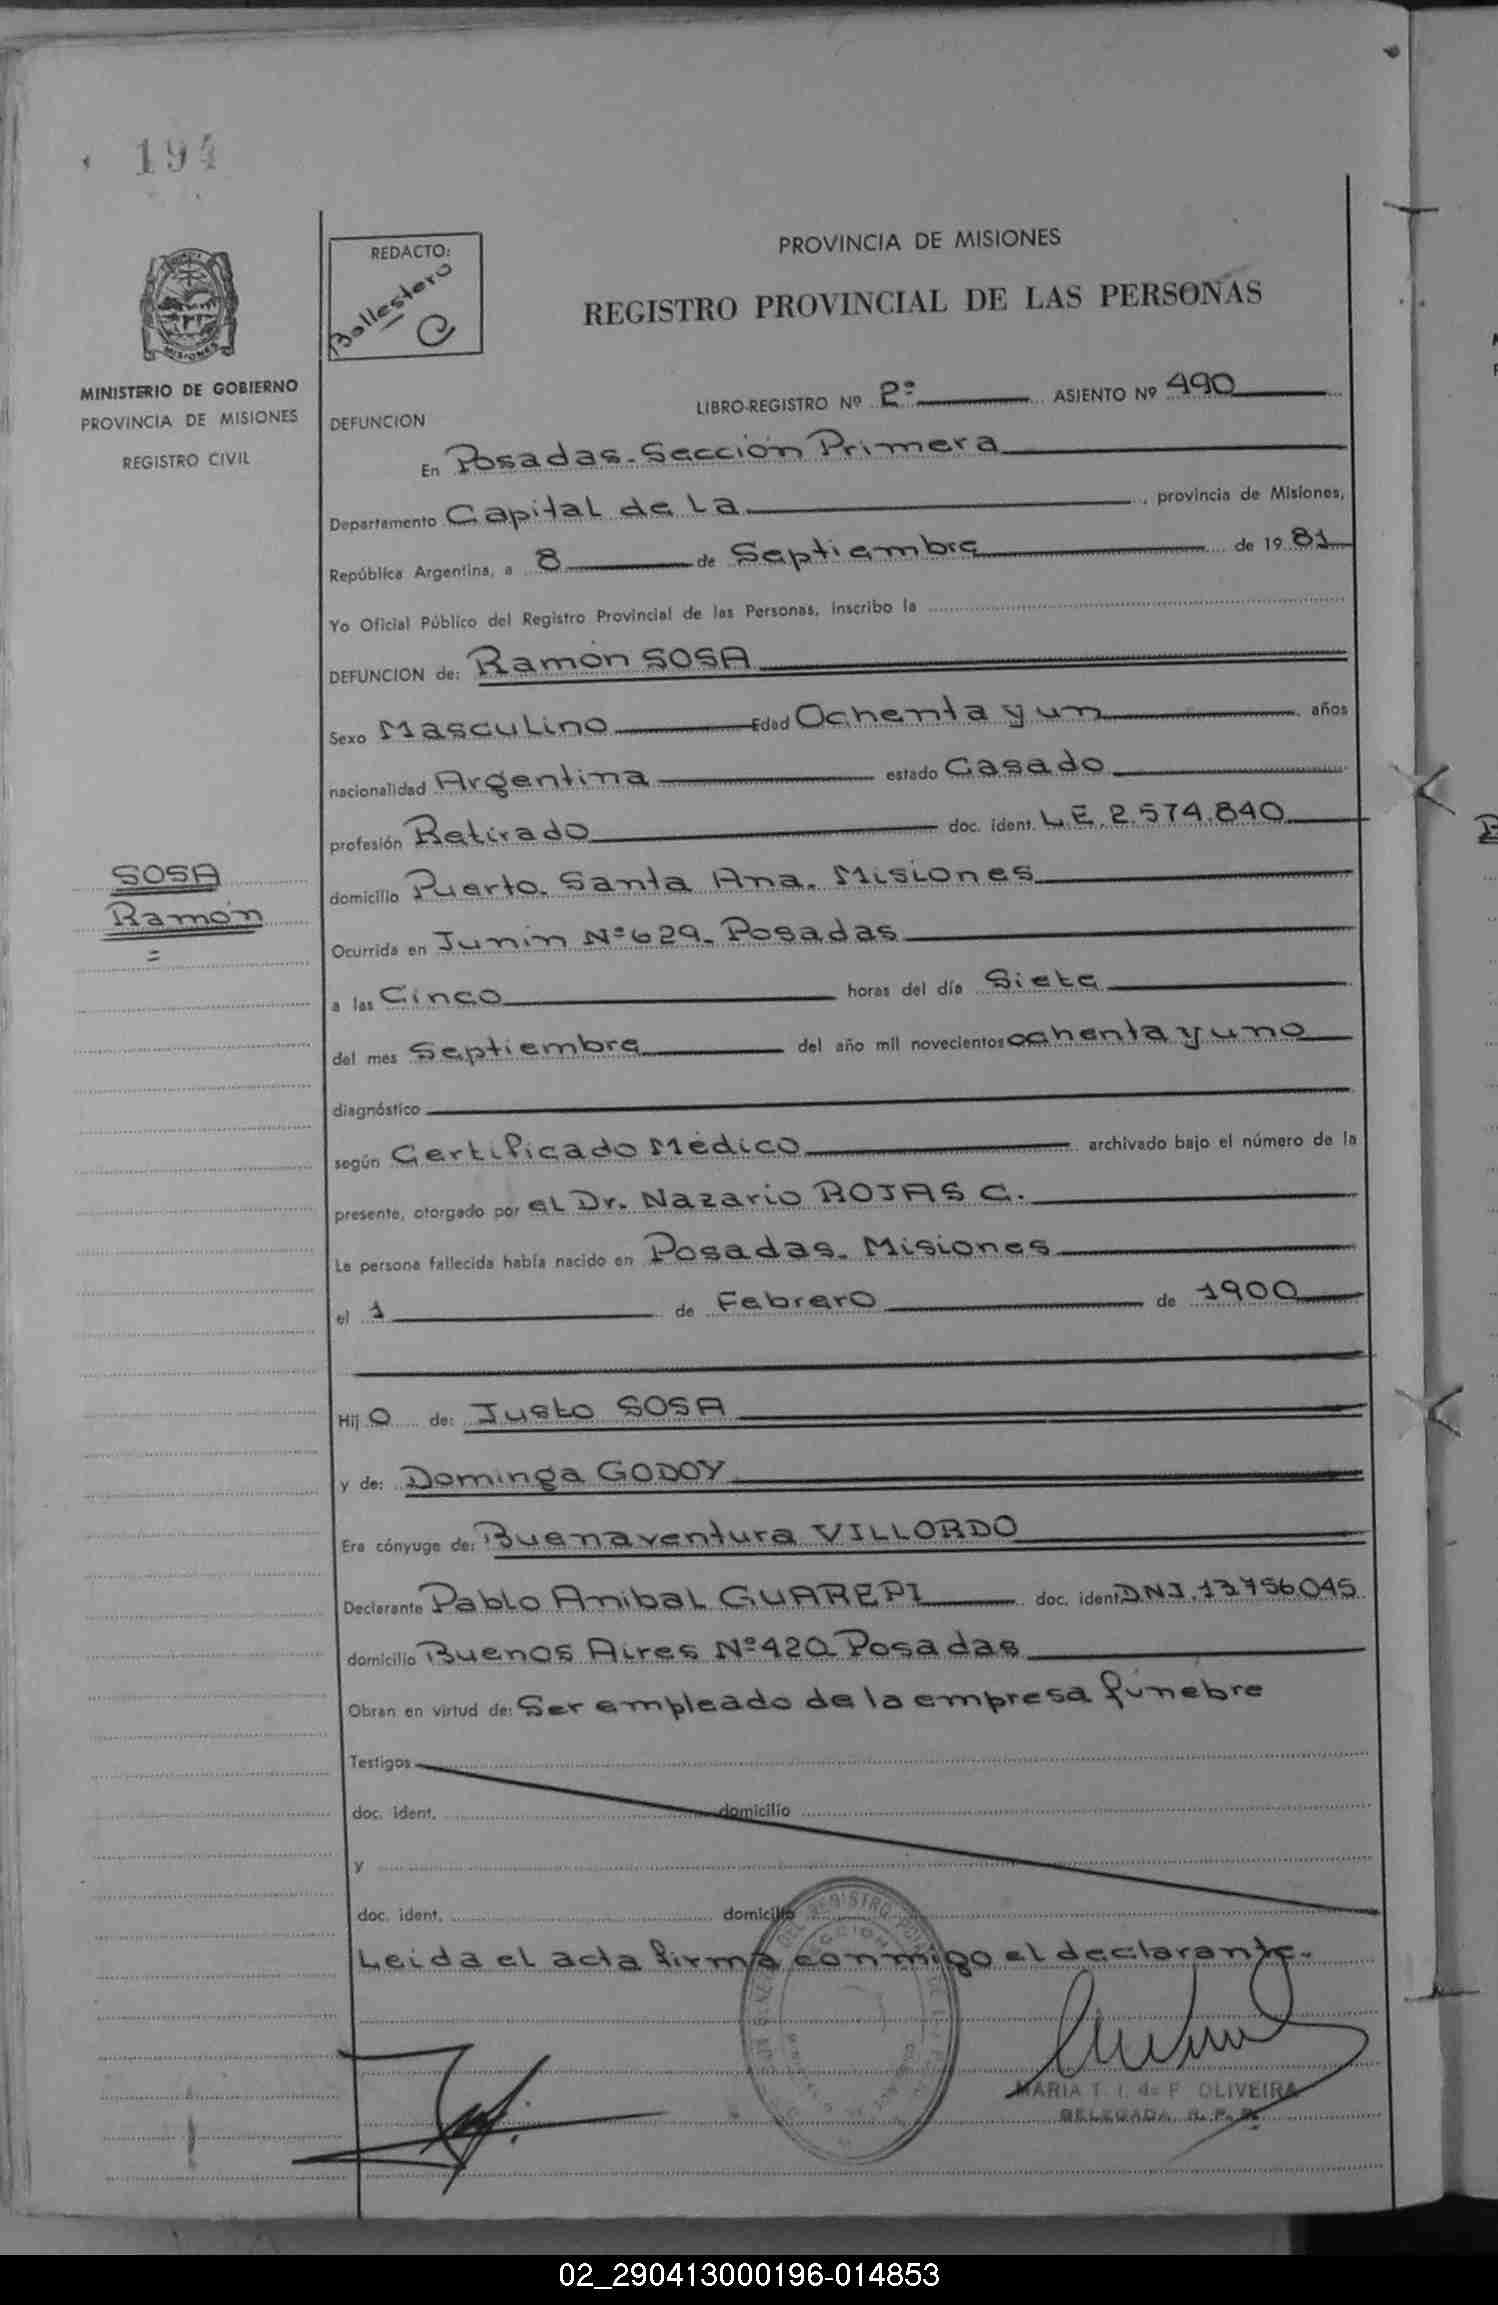 194
REDACTO:
Ballestero
PROVINCIA DE MISIONES
REGISTRO PROVINCIAL DE LAS PERSONAS
MISIONES
MINISTERIO DE GOBIERNO
PROVINCIA DE MISIONES
REGISTRO CIVIL
LIBRO-REGISTRO Nº 2º ASIENTO Nº 490
DEFUNCION
En Posadas-Sección Primera
Departamento Capital de La, provincia de Misiones,
República Argentina, a 8 de Septiembre de 1981
Yo Oficial Público del Registro Provincial de las Personas, inscribo la
DEFUNCION de: Ramón SOSA
Sexo Masculino Edad Ochenta y un años
nacionalidad Argentina estado Casado
profesión Retirado doc. ident. L.E. 2.574.840
SOSA
Ramón
=
domicilio Puerto. Santa Ana. Misiones
Ocurrida en Junín Nº 629. Posadas
a las Cinco horas del día Siete
del mes Septiembre del año mil novecientos ochenta y uno
diagnóstico
según Certificado Médico archivado bajo el número de la
presente, otorgado por el Dr. Nazario ROJAS C.
La persona fallecida había nacido en Posadas. Misiones
el 1 de Febrero de 1900
Hij o de: Justo SOSA
y de: Dominga GODOY
Era cónyuge de: Buenaventura VILLORDO
Declarante Pablo Anibal GUAREPI doc. ident DNI. 13.756.045
domicilio Buenos Aires Nº 420 Posadas
Obran en virtud de: Ser empleado de la empresa fúnebre
Testigos
doc. ident. domicilio
y
doc. ident. domicilio
Leída el acta firma conmigo el declarante.
MARIA T. I. de F. OLIVEIRA
DELEGADA R. P. P.
02_290413000196-014853